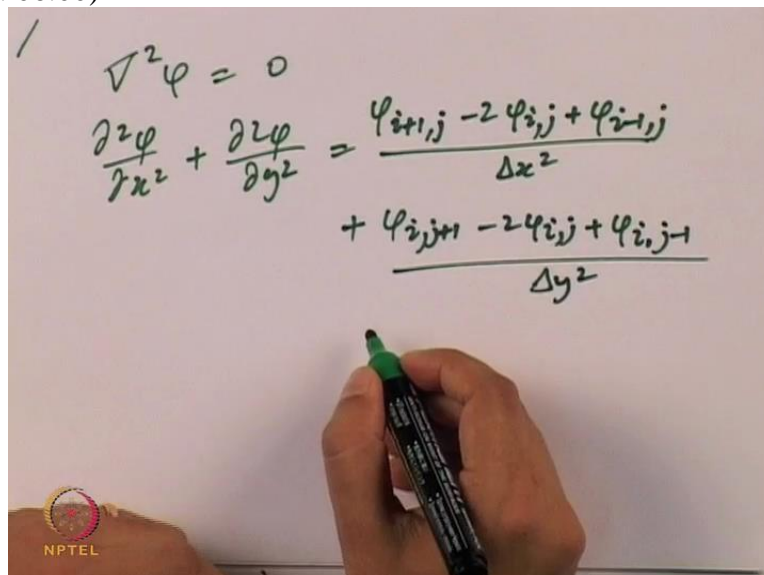 /
∇²φ = 0
∂²φ/∂x² + ∂²φ/∂y² = (φi+1,j − 2φi,j + φi−1,j)/Δx²
+ (φi,j+1 − 2φi,j + φi,j−1)/Δy²
NPTEL